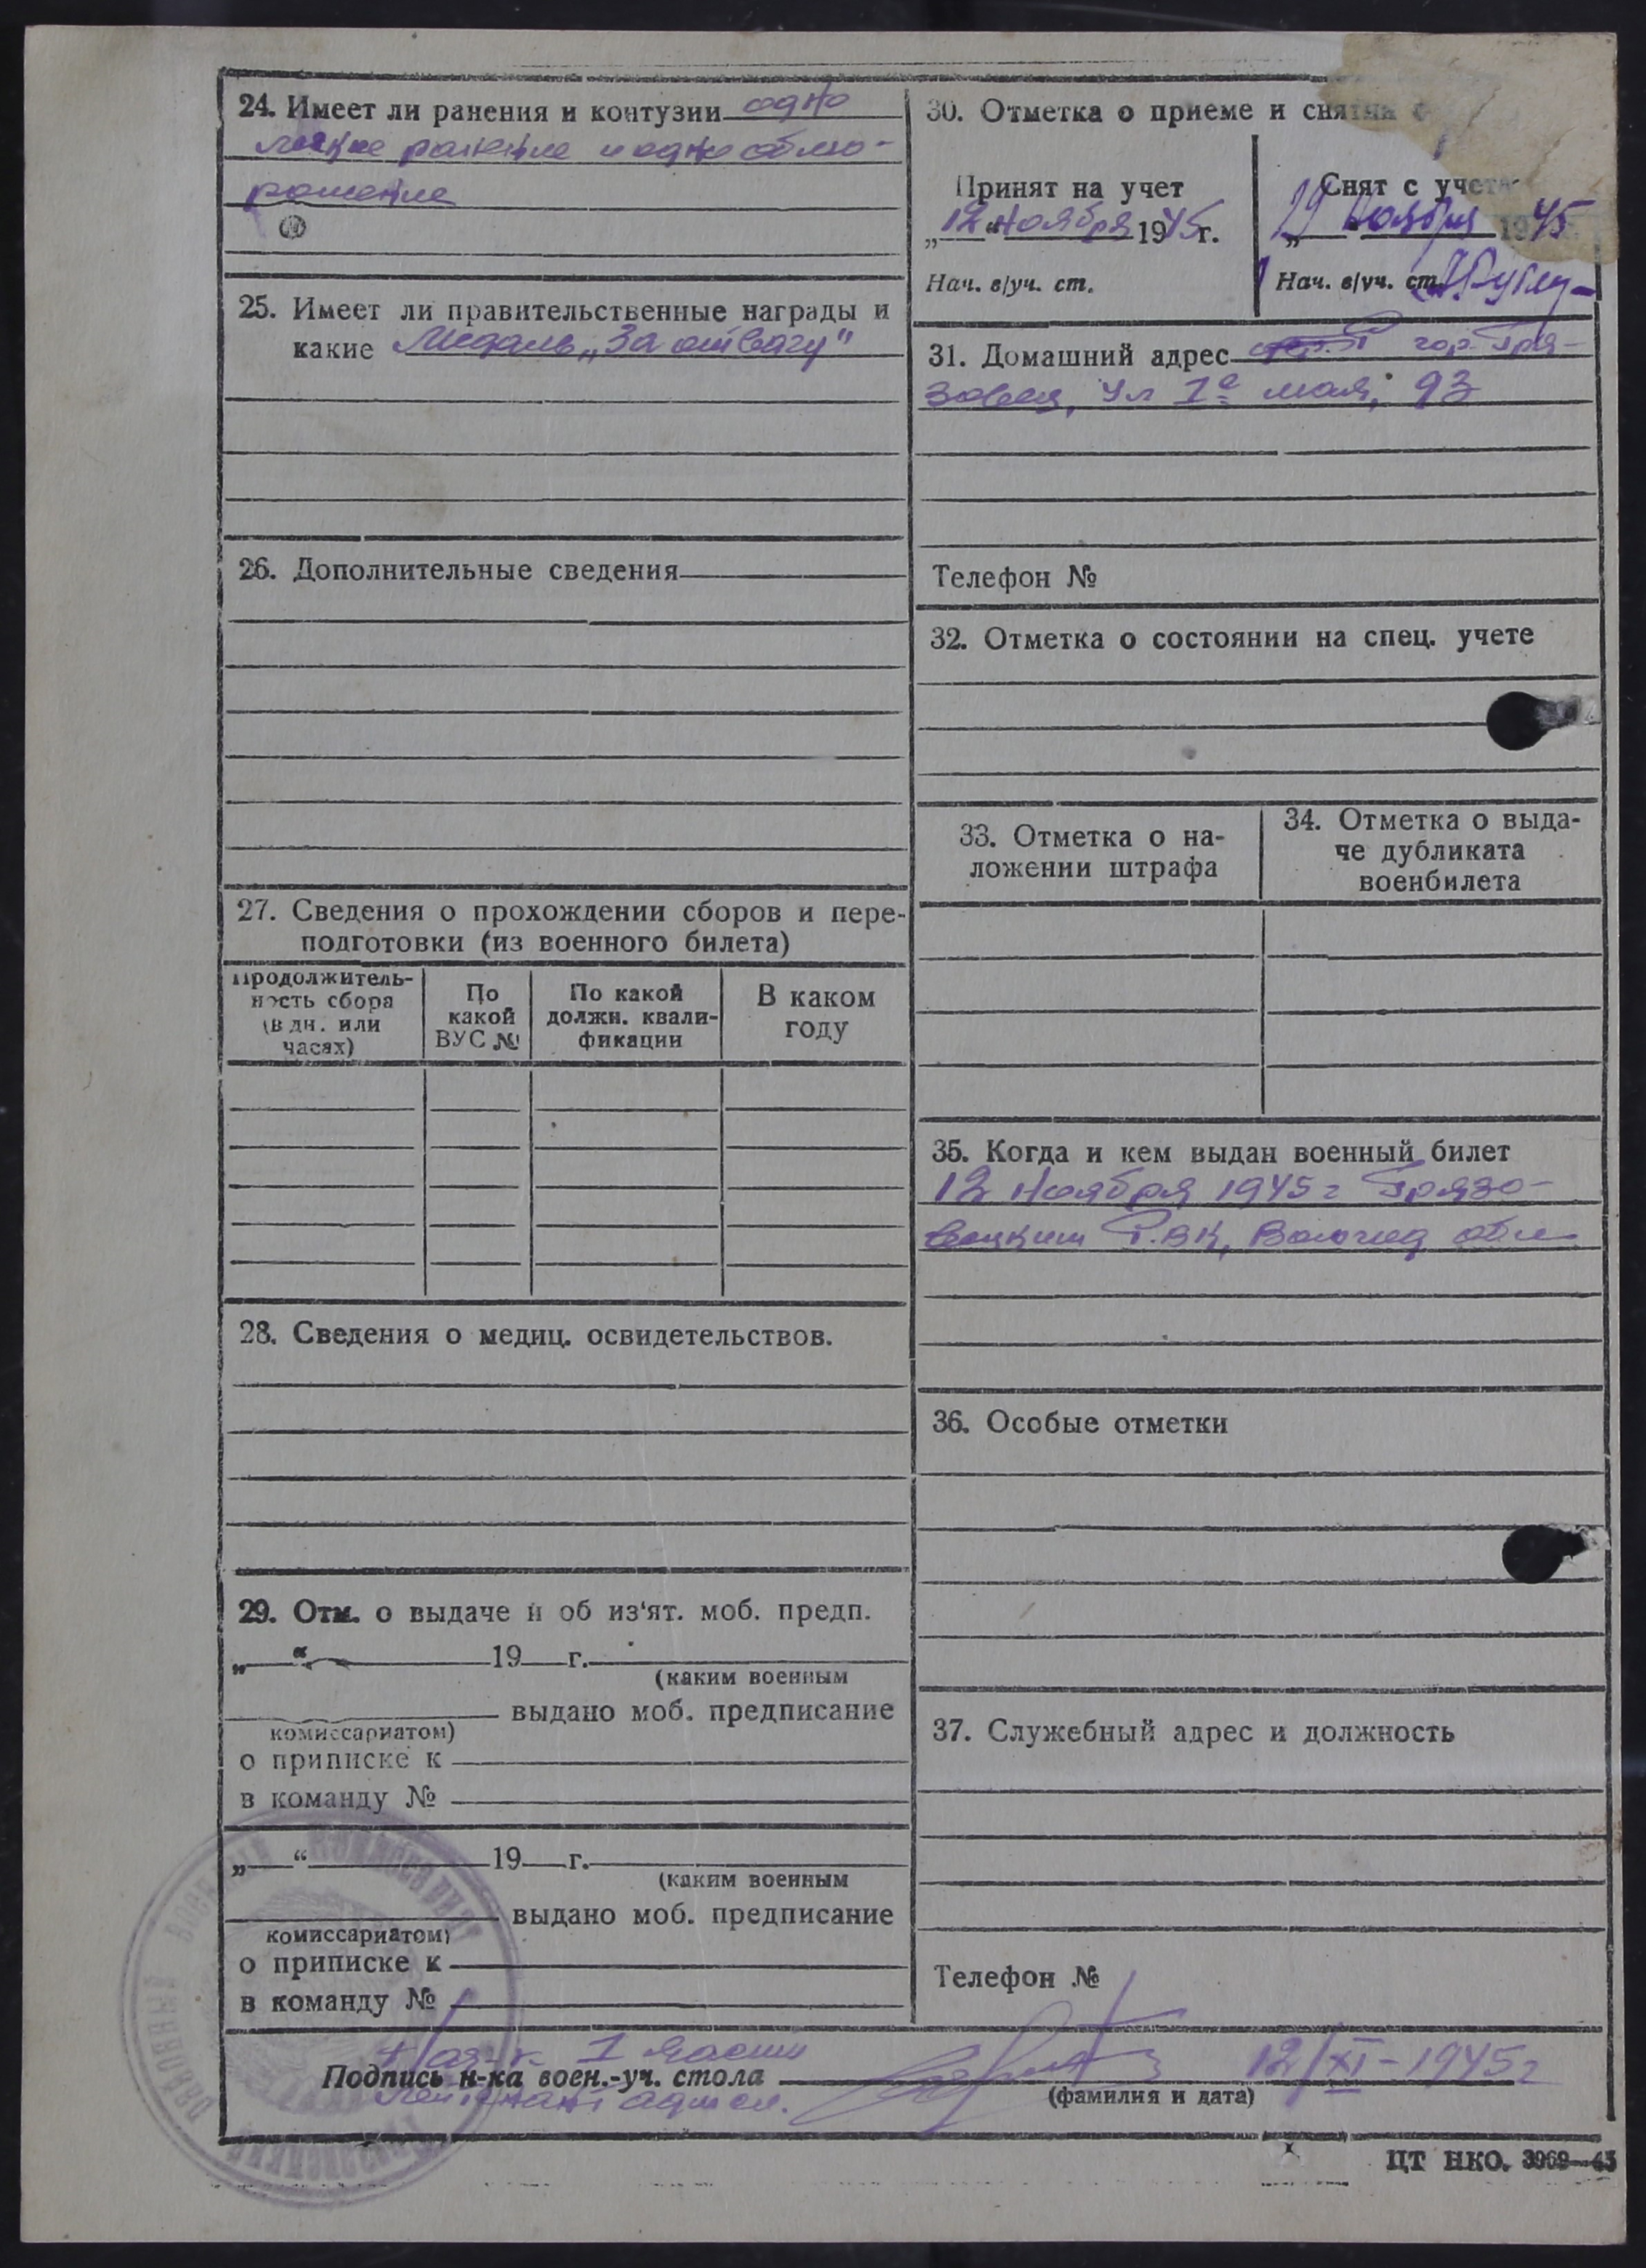 24. Имеет ли ранения и контузии одно
легкое ранение и одно обмо-
рожение
25. Имеет ли правительственные награды и
какие Медаль „За отвагу"
26. Дополнительные сведения
27. Сведения о прохождении сборов и пере-
подготовки (из военного билета)
Продолжитель-
ность сбора
(в дн. или
часах)
По
какой
ВУС №
По какой
должн. квали-
фикации
В каком
году
28. Сведения о медиц. освидетельствов.
29. Отм. о выдаче и об из'ят. моб. предп.
„ “ 19 г.
(каким военным
выдано моб. предписание
комиссариатом)
о приписке к
в команду №
„ “ 19 г.
(каким военным
выдано моб. предписание
комиссариатом)
о приписке к
в команду №
30. Отметка о приеме и снятии
Принят на учет
„12“ ноября 1945 г.
Нач. в/уч. ст.
Снят с учета
„19 ноября 1945
Нач. в/уч. ст.
31. Домашний адрес гор. Гря-
зовец, ул 1е мая, 93
Телефон №
32. Отметка о состоянии на спец. учете
33. Отметка о на-
ложении штрафа
34. Отметка о выда-
че дубликата
военбилета
35. Когда и кем выдан военный билет
12 ноября 1945 г Грязо-
вецким Р.ВК, Вологод обл
36. Особые отметки
37. Служебный адрес и должность
Телефон №
Нач-к 1 части
Подпись н-ка воен.-уч. стола 12/XI-1945 г
(фамилия и дата)
лейтенант адм сл.
ЦТ НКО. 3968—43